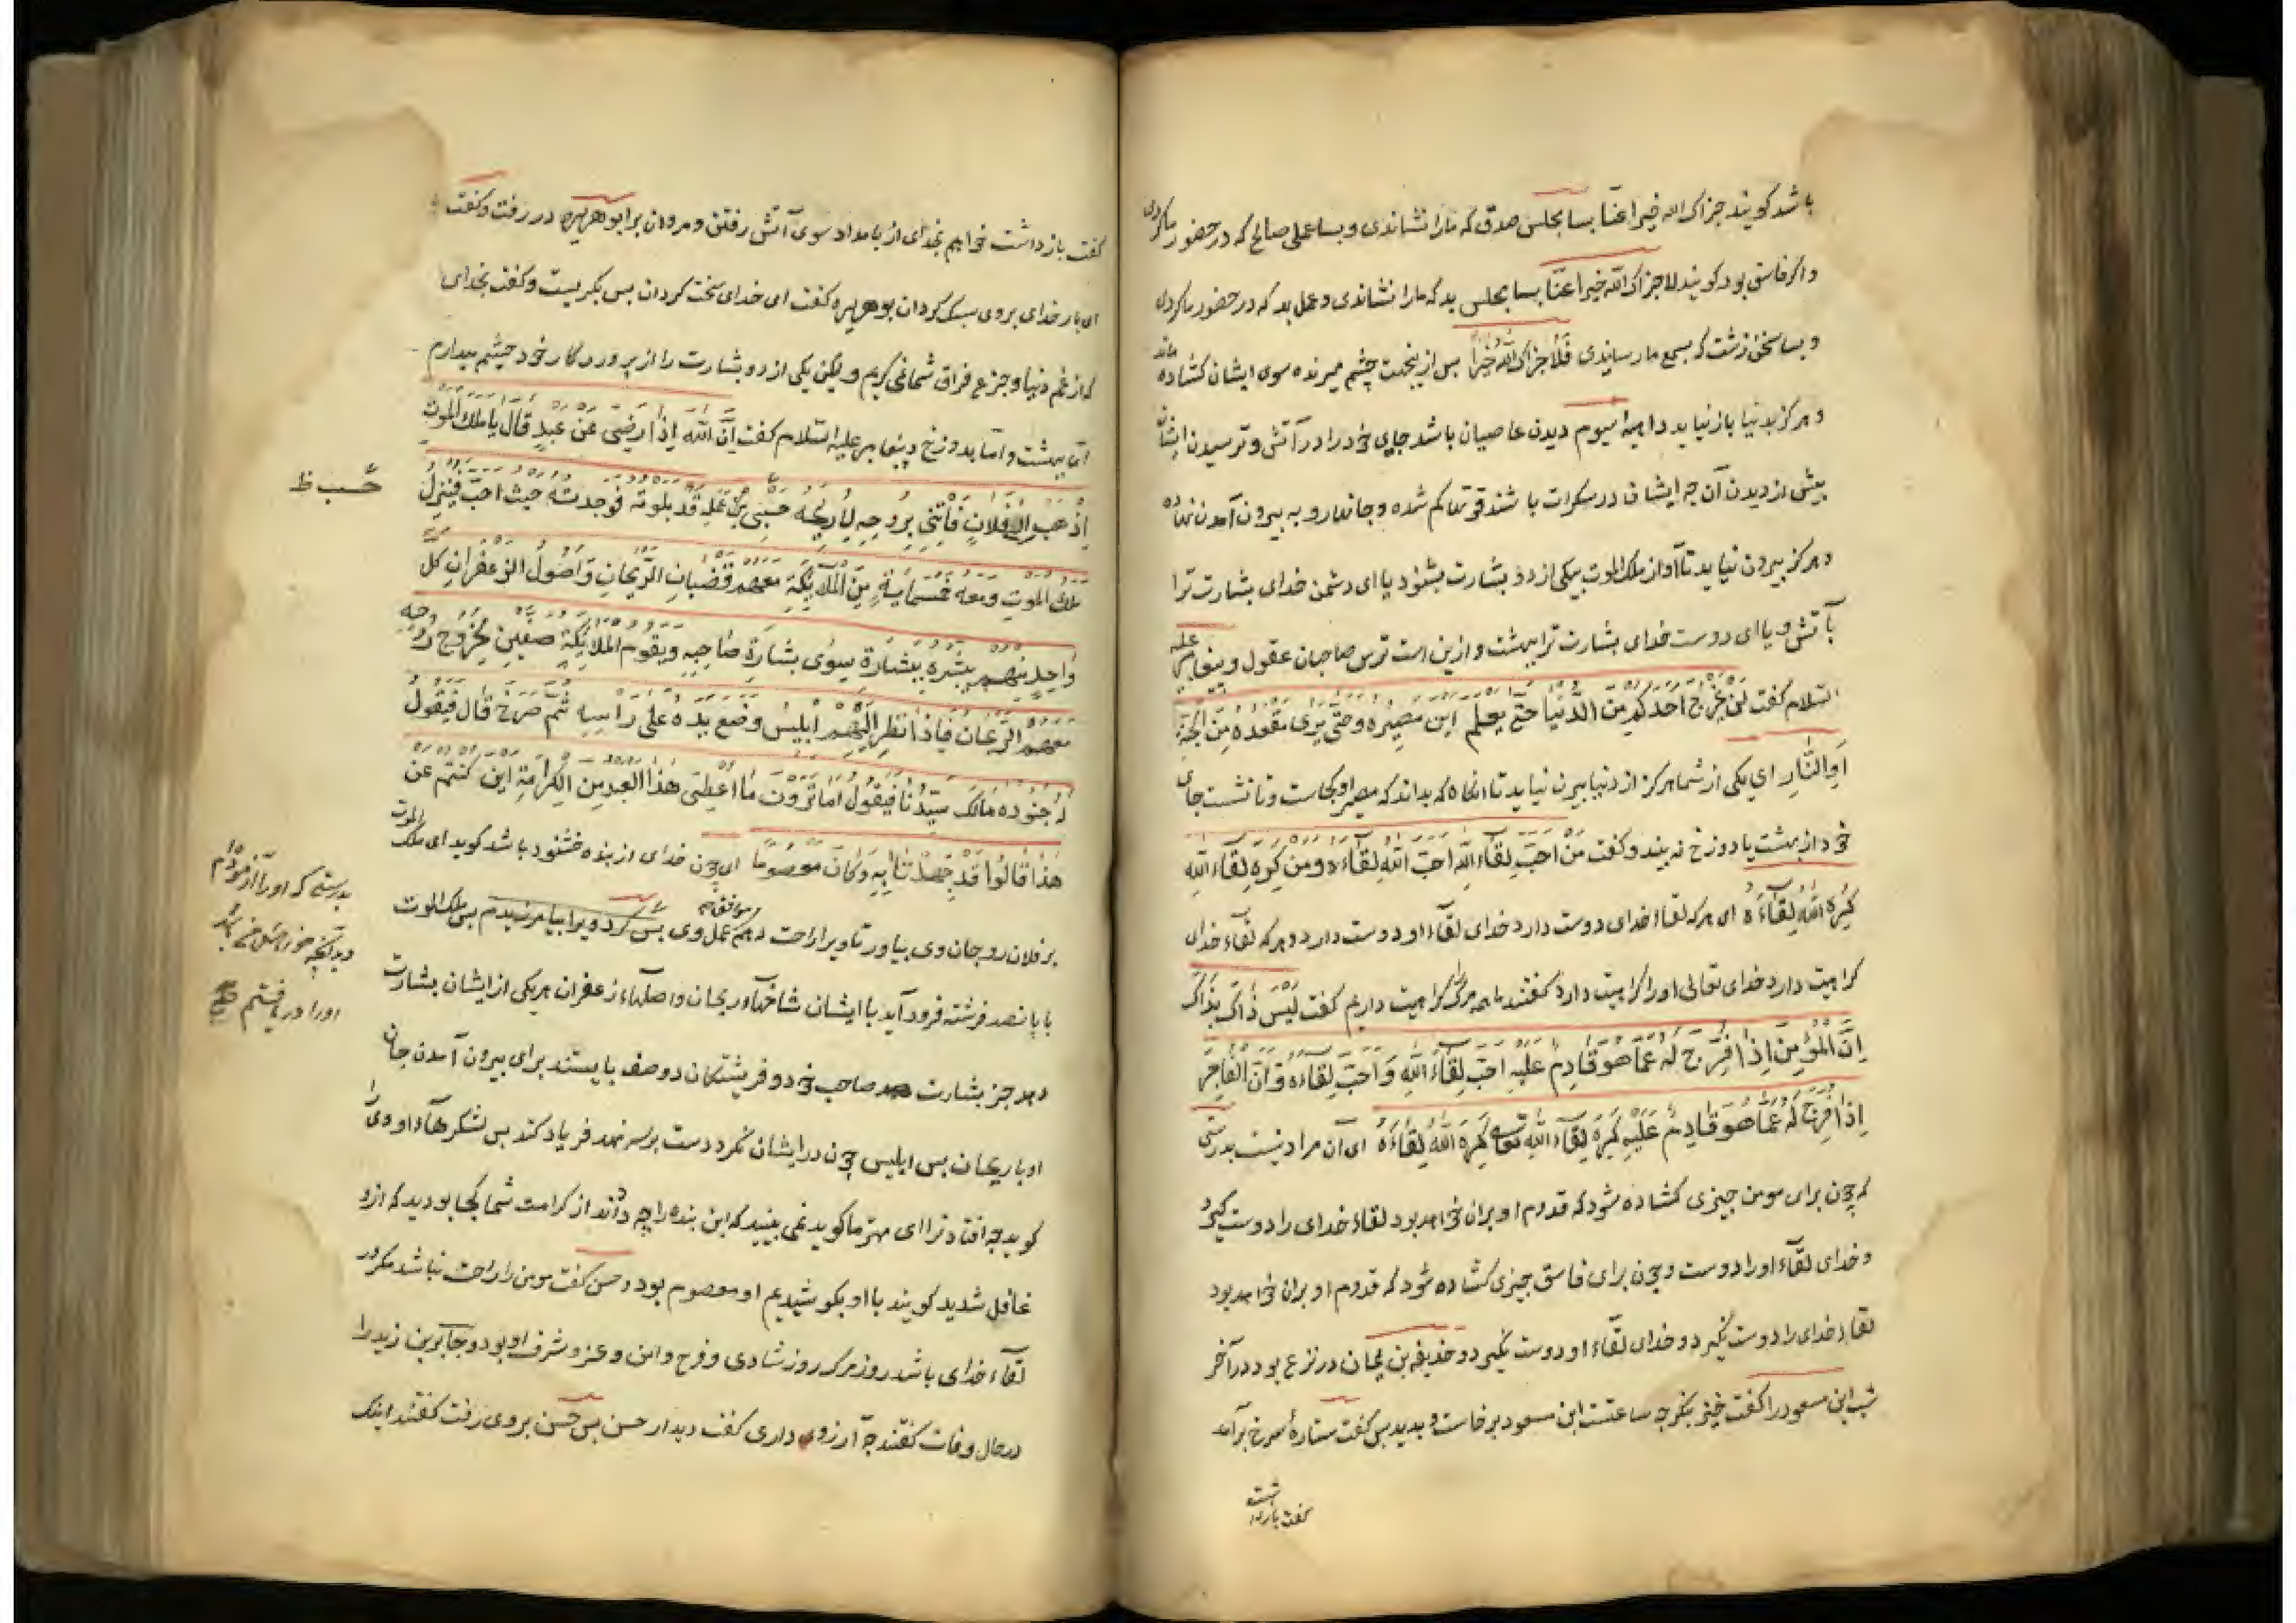 باشد کویند جزاک الله خیرا عنّا بسا مجلس صدق که مارا نشاندی و بسا عملی صالح که در حضور ما کردی
و اکر فاسق بود کویند لا جزاک الله خیرا عنّا بسا مجلس بد که مارا نشاندی و عمل بد که در حضور ما کردی
و بسا سخن زشت که بسمع ما رساندی فلا جزاک الله خیرا پس از ینجاست چشم میرنده سوی ایشان کشاده ماند
و هرکز بدنیا باز نیاید داهیهٔ سیوم دیدن عاصیان باشد جای خود را در آتش و ترسیدن ایشان
پیش از دیدن آن چه ایشان در سکرات باشند قوتها کم شده و جانها رو به بیرون آمدن نهاده
و هرکز بیرون نیاید تا آواز ملک الموت بیکی از دو بشارت بشنود یا ای دشمن خدای بشارت ترا
بآتش و یا ای دوست خدای بشارت ترا بهشت و ازین است ترس صاحبان عقول و پیغامبر علیه
السلام کفت لَن یَخْرُجَ اَحَدُکُم مِنَ الدُّنْیا حَتّی یَعلم اَینَ مَصِیرُهُ وحَتّی یَرٰی مَقْعَدَهُ مِنَ الجَنَّةِ
اَوِ النّارِ ای یکی از شما هرکز از دنیا بیرن نیاید تا انکاه که بداند که مصیر او کجاست و تا نشست جای
خود از بهشت یا دوزخ نه بیند و کفت مَن اَحَبَّ لِقَاءَ اللهِ اَحَبَّ اللهُ لِقَاءَهُ و مَن کَرِهَ لِقَاءَ اللهِ
کَرِهَ اللهُ لِقَاءَهُ ای هر که لقاء خدای دوست دارد خدای لقآء او دوست دارد و هر که لقآء خدای
کراهیت دارد خدای تعالی او را کراهیت دارد کفتند ما همه مرک را کراهیت داریم کفت لَیْسَ ذَاکَ بِذَاکَ
اِنَّ المُؤْمِنَ اِذَا فُرِّجَ لَهُ عَمَّا هُوَ قَادِمٌ عَلَیْهِ اَحَبَّ لِقَاءَ اللهِ وَاَحَبَّ لِقَاءَهُ وَاِنَّ الفَاجِرَ
اِذَا فُرِّجَ لَهُ عَمَّا هُوَ قَادِمٌ عَلَیْهِ کَرِهَ لِقَآءَ اللهِ کَرِهَ اللهُ لِقَاءَهُ ای آن مراد نیست بدرستی
که چون برای مومن چیزی کشاده شود که قدوم او بران خواهد بود لقاء خدای را دوست کیرد
و خدای لقآء او را دوست و چون برای فاسق چیزی کشاده شود که قدوم او بران خواهد بود
لقاء خدای را دوست نکیرد و خدای لقآء او دوست نکیرد و حذیفه بن یمان در نزع بود در آخر
شب ابن مسعود را کفت خیز بنکر چه ساعتست ابن مسعود برخاست و بدید پس کفت ستارهٔ سرخ برآمد
کفت بازداشت
کفت بازداشت خواهم بخدای از بامداد سوی آتش رفتن و مروان بر ابو هریره در رفت و کفت
ای بار خدای بروی سبک کردان بوهریره کفت ای خدای سخت کردان پس بکریست و کفت بخدای
که از غم دنیا و جزع فراق شما نمی کریم ولیکن یکی از دو بشارت را از پروردکار خود چشم میدارم
اما بهشت و اما بدوزخ و پیغامبر علیه السلام کفت اِنَّ اللهَ اِذَا رَضِیَ عَنْ عَبدٍ قَالَ یَا مَلَکَ المَوْتِ
اِذْهَبْ اِلٰی فُلانٍ فَأْتِنِی بِرُوحِهِ لِاُرِیحَهُ حَسْبِی مِنْ عَمَلِهِ قَد بلوته فوجدتُهُ حَیْثُ اُحِبّ فَیَنْزِلُ
حَسب ظ
مَلَکُ المَوتِ وَمَعَهُ خَمْسُمِائةٍ مِنَ المَلَائِکَةِ مَعَهُم قُضْبَانِ الرَّیْحَانِ وَاُصُولُ الزَّعْفَرَانِ کل
وَاحِدٍ مِنْهُم یُبَشِّرُهُ بِبِشَارَةٍ سِوٰی بِشَارَةِ صَاحِبِهِ وَیَقُومُ المَلَائِکَةُ صَفَّیْنِ لِخُرُوجِ رُوحِهِ
مَعَهُمُ الرَّیْحَانُ فَاِذَا نَظَرَ اِلَیْهِم اِبْلِیسُ وَضَعَ یَدَهُ عَلٰی رَأسِهِ ثُمَّ صَرَخَ قَالَ فَیَقُولُ
لَهُ جُنُودُهُ مَالَکَ سَیِّدَنَا فَیَقُولُ اَمَا تَرَوْنَ مَا اُعْطِیَ هٰذَا العَبدُ مِنَ الکَرَامَةِ اَیْنَ کُنْتُم عَن
هٰذَا قَالُوا قَد جَهَدْنَا بِهِ وَکَانَ مَعصُومًا ای چون خدای از بنده خشنود باشد کوید ای ملک الموت
بر فلان رو جان وی بیاور تا ویرا راحت دهم عمل وی بس کرد ویرا بیامرزیدم پس ملک الموت
بدرستی که او را آزمودم
اورا دریافتم
با پانصد فرشته فرود آید با ایشان شاخهآء ریحان و اصلهآء زعفران هر یکی از ایشان بشارت
دهد جز بشارت صاحب خود و فریشتکان دو صف بایستند برای بیرون آمدن جان
او با ریحان پس ابلیس چون در ایشان نکرد دست بر سر نهد فریاد کند پس لشکرهآء او ویرا
کوید چه افتاد ترا ای مهتر ما کوید نمی بینید که این بنده را چه دادند از کرامت شما کجا بودید که ازو
غافل شدید کویند با او بکوشیدیم او معصوم بود و حسن کفت مومن را راحت نباشد مکر در
لقآء خدای باشد روز مرک روز شادی و فرح و امن و عز و شرف او بود و جابر بن زید را
در حال وفات کفتند چه آرزوی داری کفت دیدار حسن پس حسن بروی رفت کفتند اینک